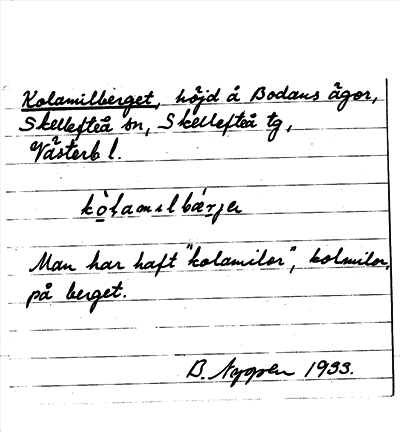 Kolamilberget, höjd å Bodans ägor,
Skellefteå sn, Skellefteå tg,
Västerb l.
kòlamılbǽrjer
Man har haft "kolamilor", kolmilor,
på berget.
B. Nyggren 1933.